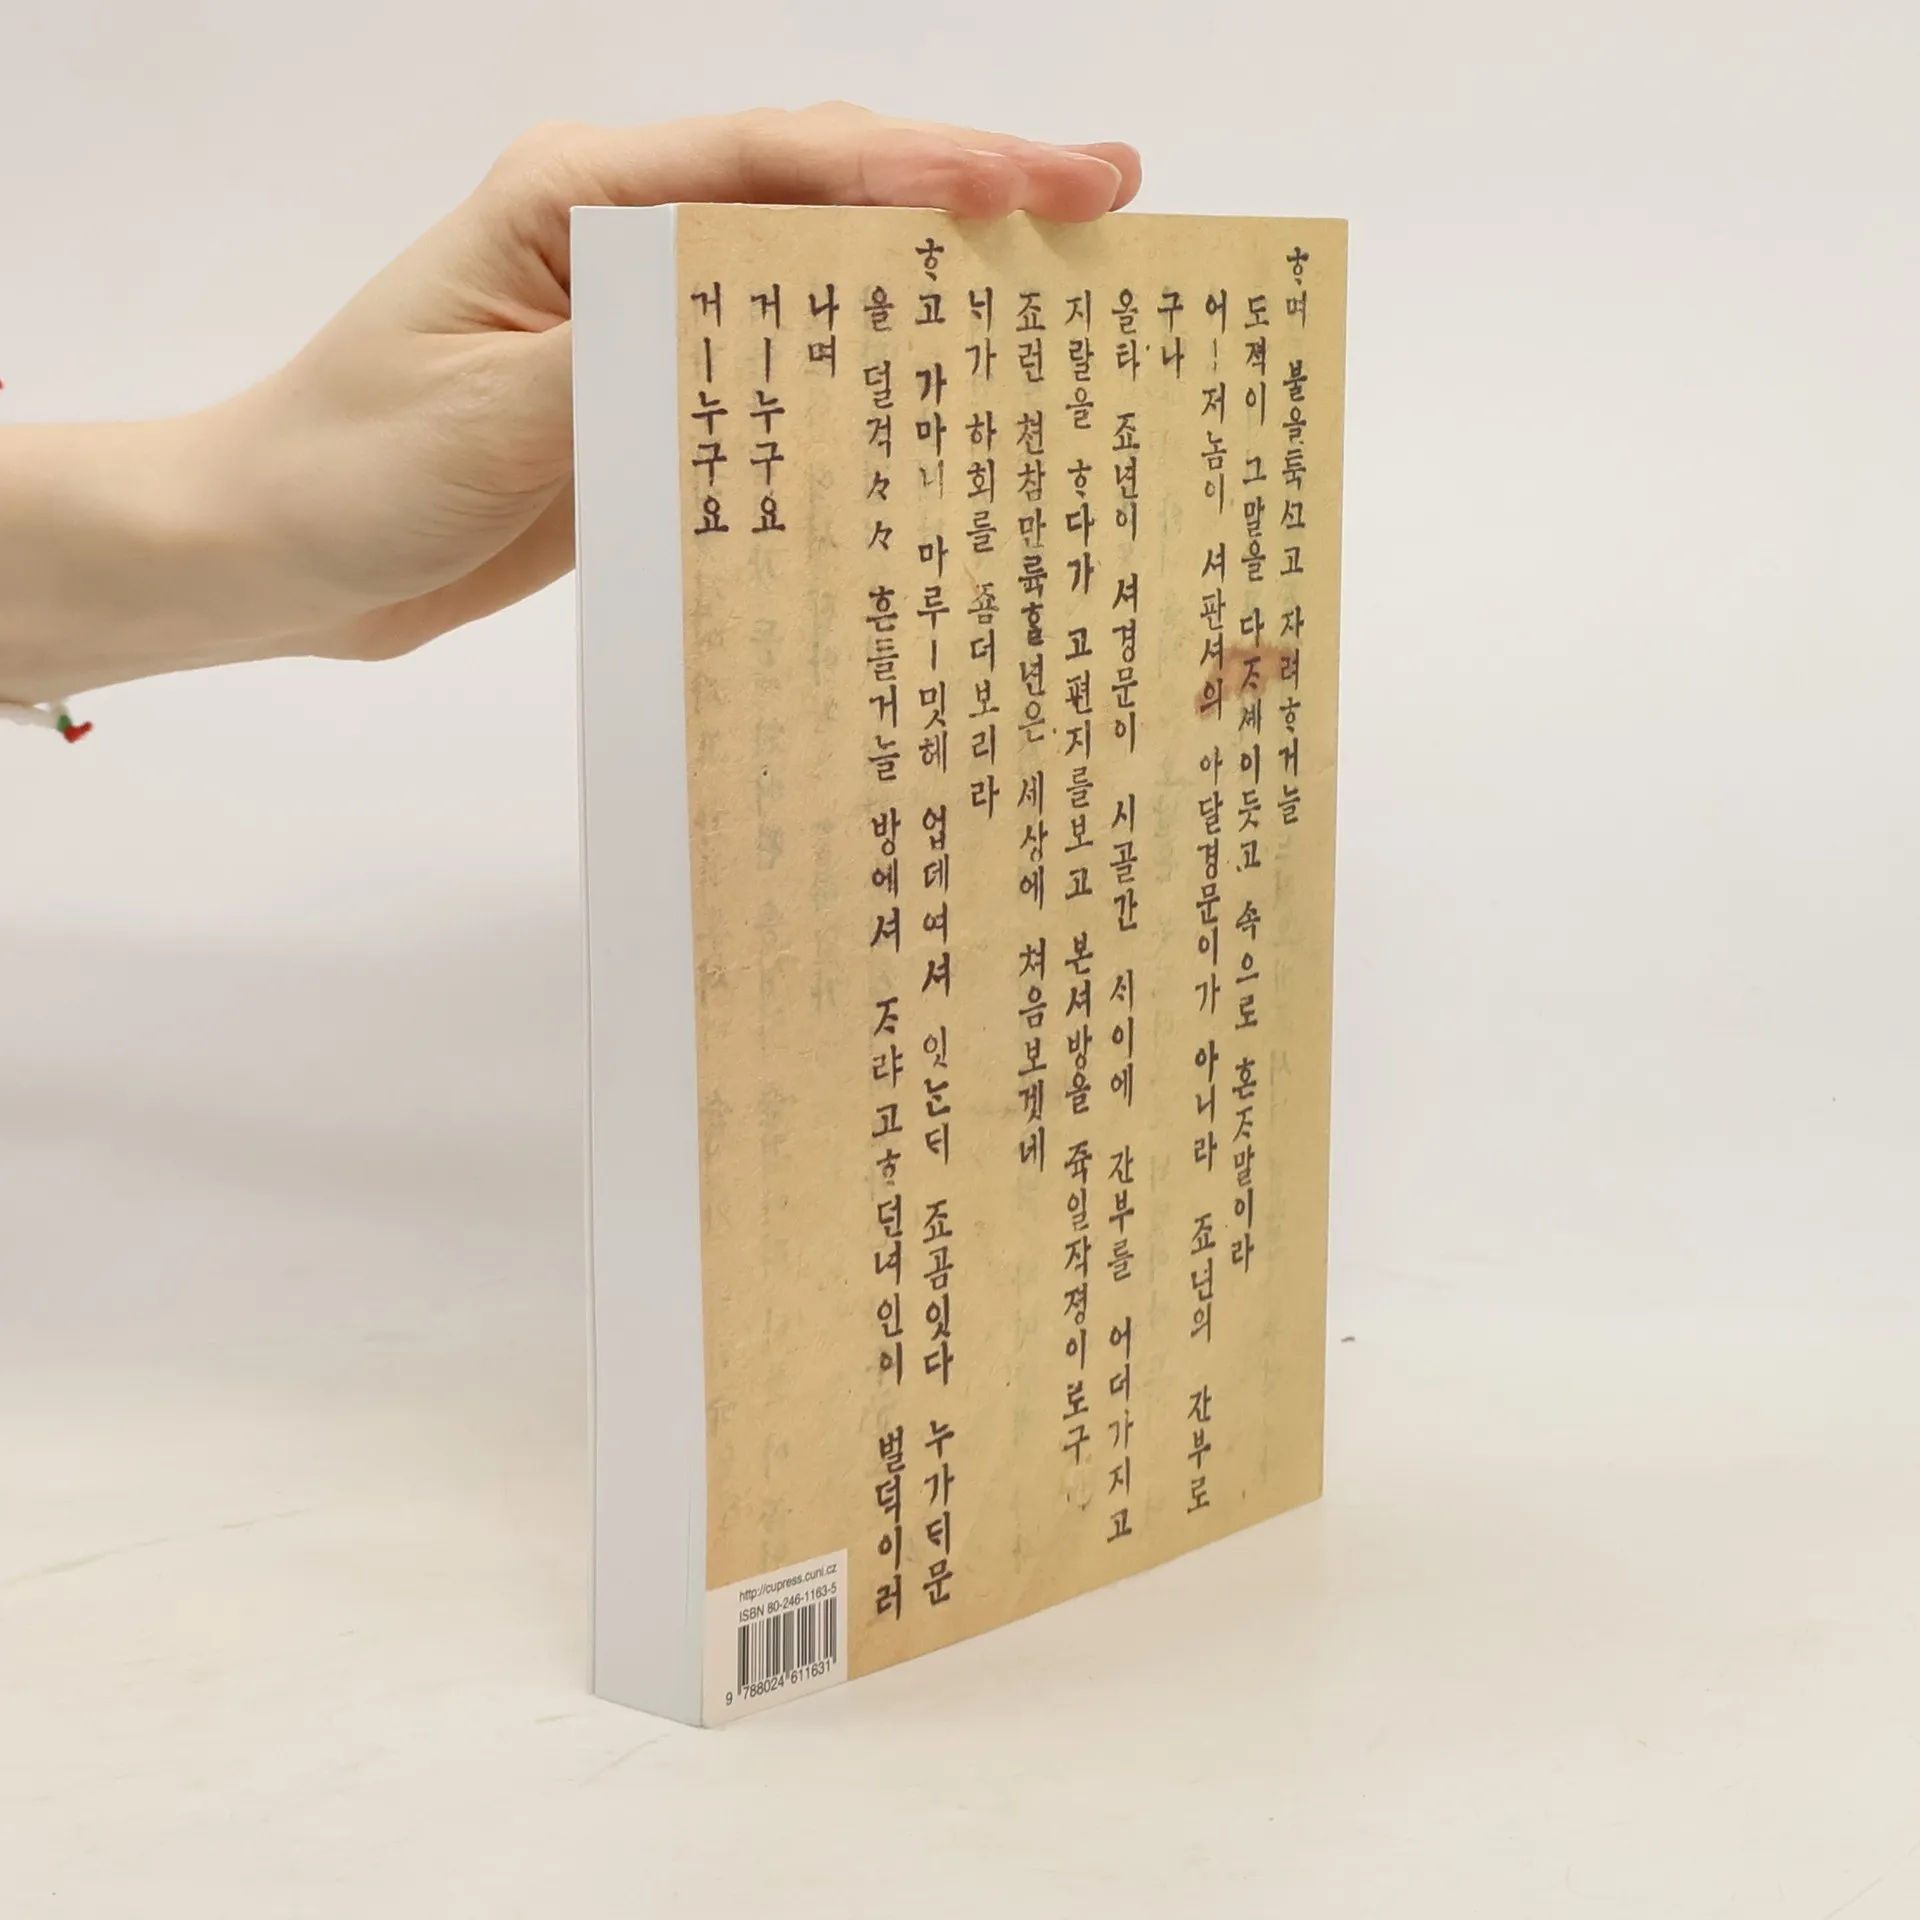 ᄒᆞ며 불을툭신고 자려ᄒᆞ거늘
도젹이 그말을 다ᄌᆞ셰이듯고 속으로 혼ᄌᆞ말이라
어ㅣ저놈이 셔판셔의 아달경문이가 아니라 죠년의 간부로
구나
올타 죠년이 셔경문이 시골간 ᄉᆞ이에 간부를 어더가지고
지랄을 ᄒᆞ다가 고편지를보고 본셔방을 쥭일작졍이로구
죠런 쳔참만륙ᄒᆞᆯ년은 세상에 쳐음보겟네
ᄂᆡ가 하회를 죰더보리라
ᄒᆞ고 가마니 마루ㅣ밋헤 업데여셔 잇ᄂᆞᆫᄃᆡ 죠곰잇다 누가ᄃᆡ문
을 덜걱々々 흔들거늘 방에셔 ᄌᆞ랴고ᄒᆞ던녀인이 벌덕이러
나며
거ㅣ누구요
거ㅣ누구요
http://cupress.cuni.cz
ISBN 80-246-1163-5
9 788024 611631